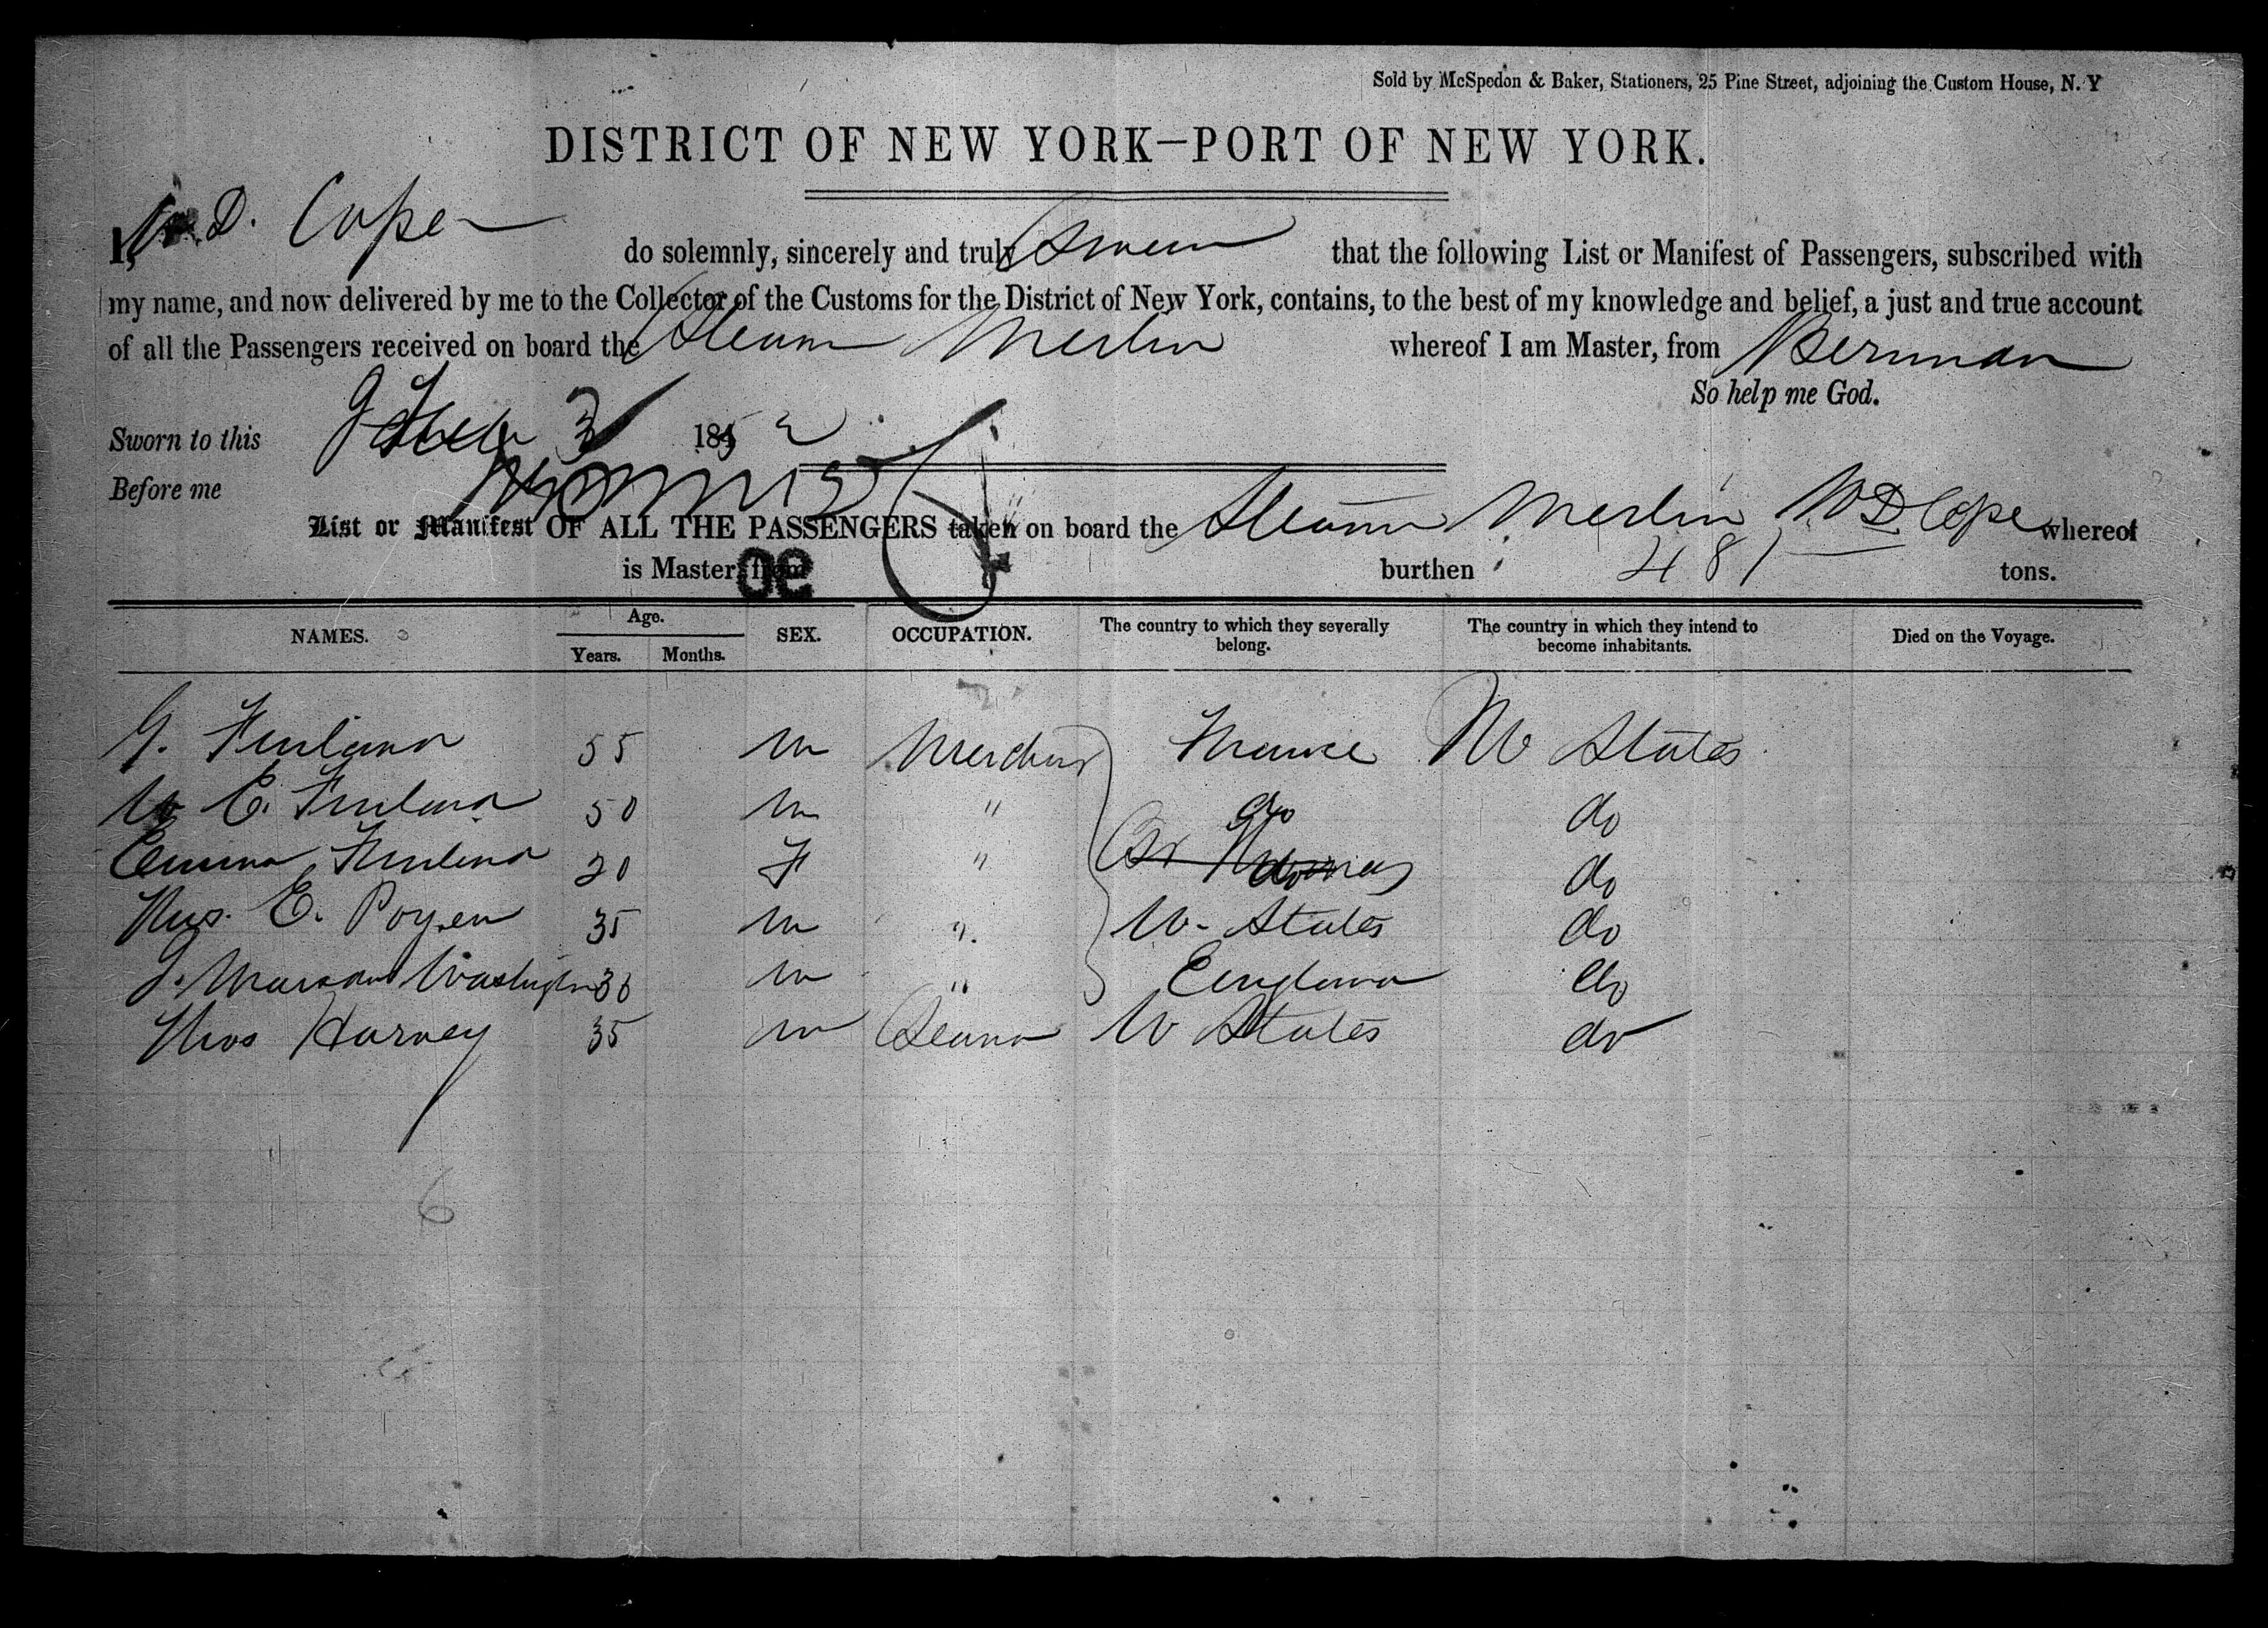 Sold by McSpedon & Baker, Stationers, 25 Pine Street, adjoining the Custom House, N. Y
DISTRICT OF NEW YORK—PORT OF NEW YORK.
I, W. D. Cope do solemnly, sincerely and truly Swear that the following List or Manifest of Passengers, subscribed with
my name, and now delivered by me to the Collector of the Customs for the District of New York, contains, to the best of my knowledge and belief, a just and true account
of all the Passengers received on board the Steam Merlin whereof I am Master, from
So help me God.
Sworn to this 3 1852
Before me
List or Manifest OF ALL THE PASSENGERS taken on board the Steam Merlin W D Cope whereof
is Master, from burthen 481 tons.
NAMES. Age. Years. Months. SEX. OCCUPATION. The country to which they severally belong. The country in which they intend to become inhabitants. Died on the Voyage.
G. 55 m France U States
E. 50 m " do do
Emma 20 F " do do
E. 35 m " U. States do
Washington 36 m " England do
Thos Harvey 35 m U States do
6